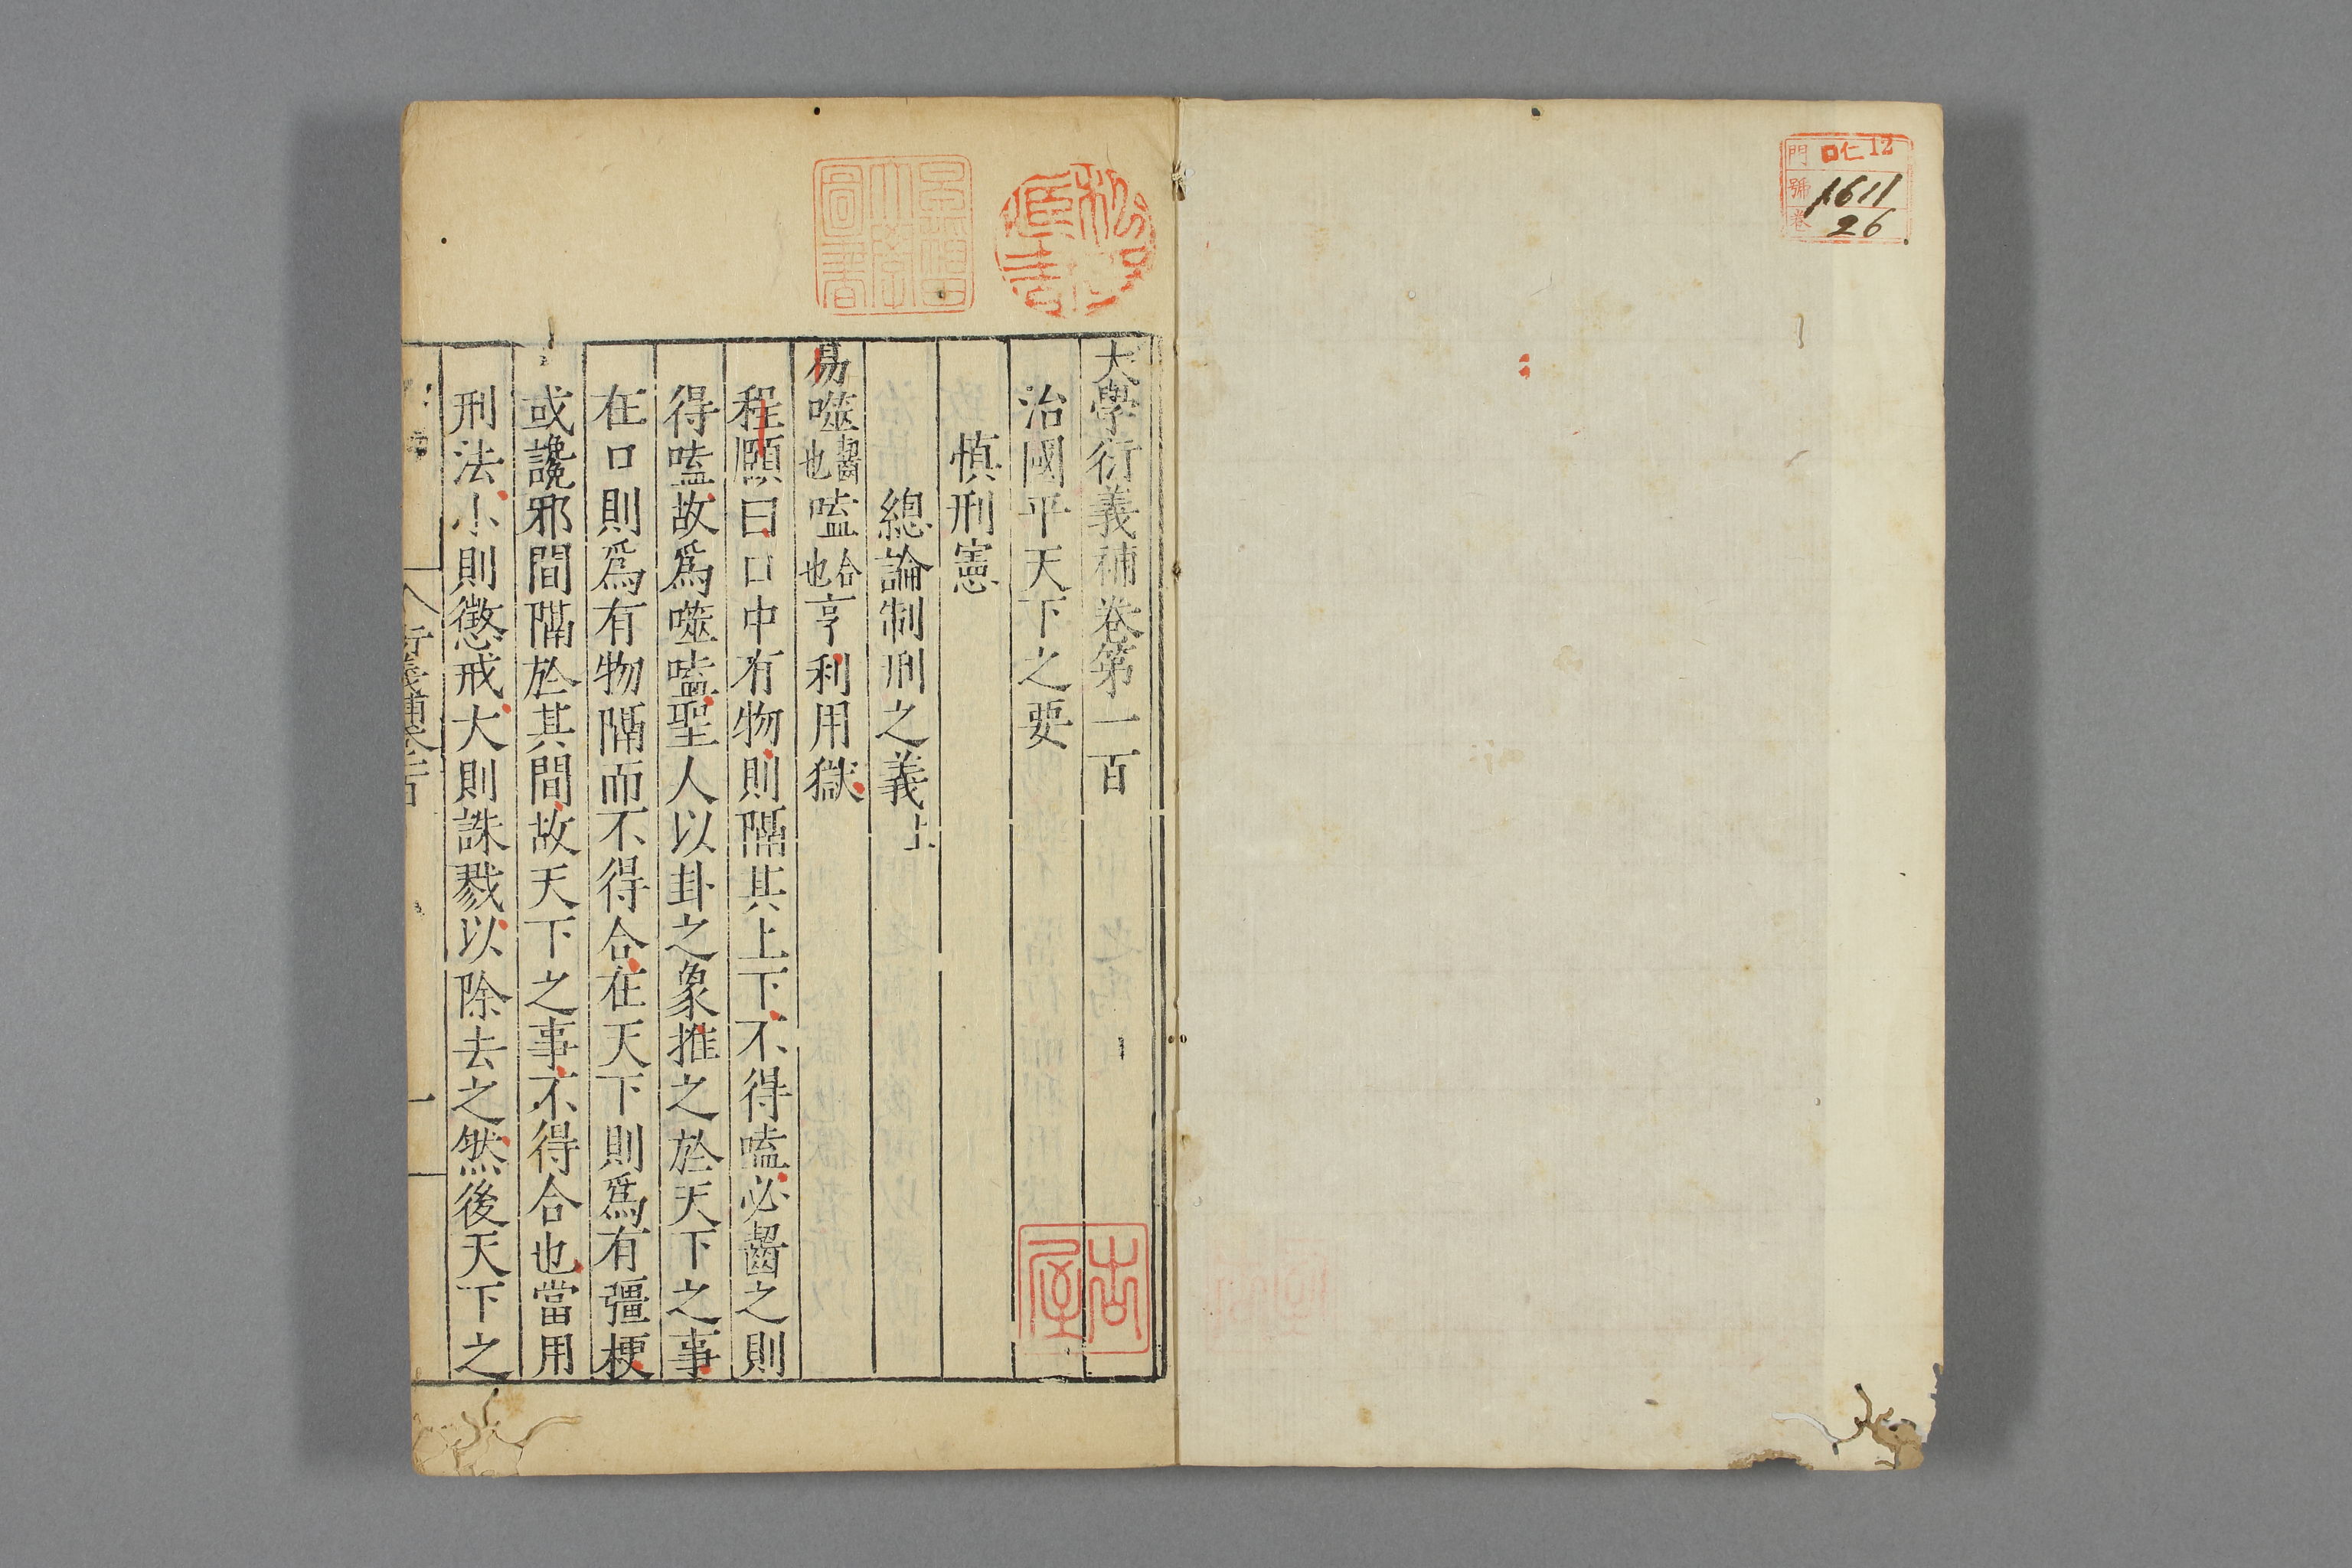 門 ロ仁 12
號 1611
卷 26
大學衍義補卷第一百
治國平天下之要
慎刑憲
總論制刑之義上
易噬齧也嗑合也亨利用獄
程頤曰口中有物則隔其上下不得嗑必齧之則
得嗑故爲噬嗑聖人以卦之象推之於天下之事
在口則爲有物隔而不得合在天下則爲有彊梗
或讒邪間隔於其間故天下之事不得合也當用
刑法小則懲戒大則誅戮以除去之然後天下之
衍義補卷一百
一